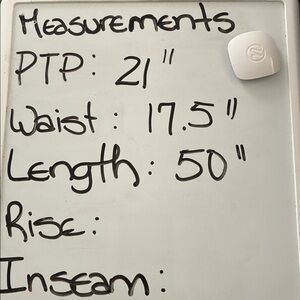 Measurements
PTP: 21"
Waist: 17.5"
Length: 50"
Rise:
Inseam: